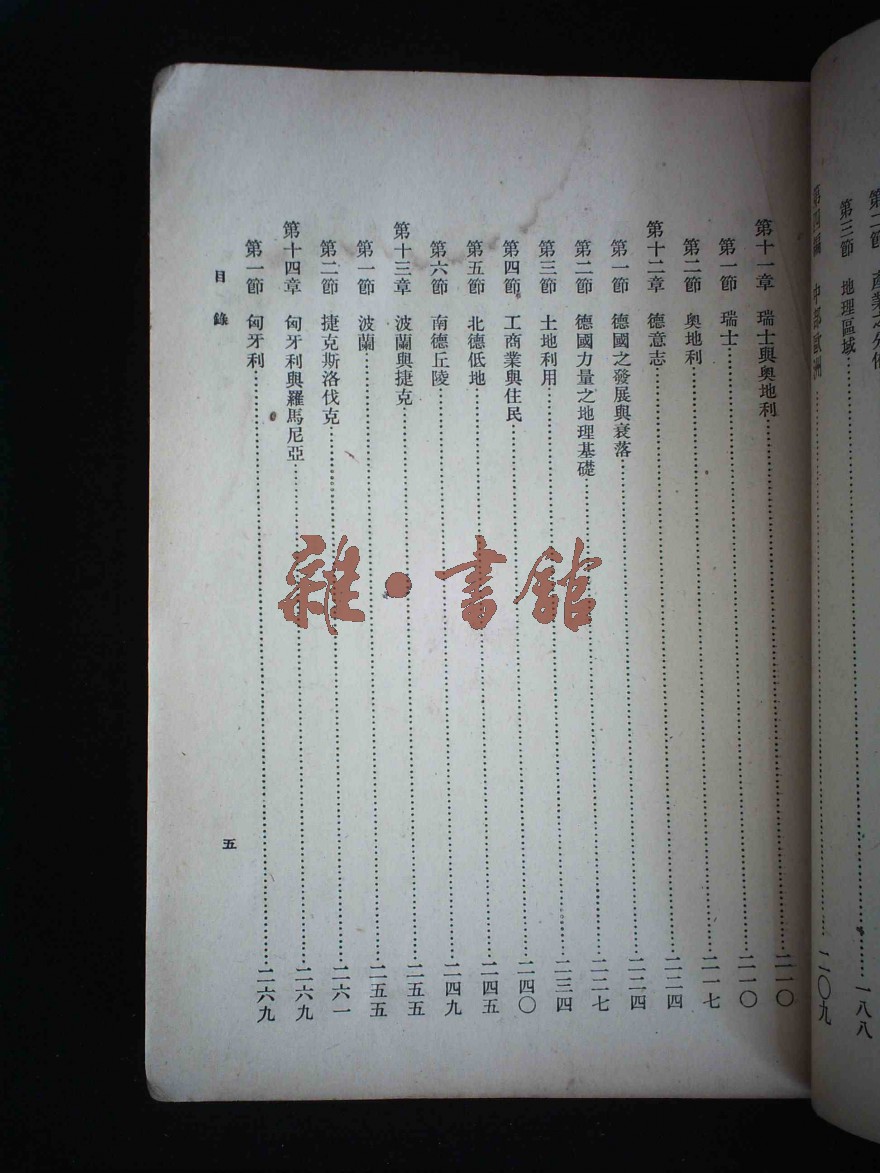 第三節 地理區域……一八八
第四編 中部歐洲……二〇九
第十一章 瑞士與奧地利……二一〇
第一節 瑞士……二一〇
第二節 奧地利……二一七
第十二章 德意志……二二四
第一節 德國之發展與衰落……二二四
第二節 德國力量之地理基礎……二二七
第三節 土地利用……二三四
第四節 工商業與住民……二四〇
第五節 北德低地……二四五
第六節 南德丘陵……二四九
第十三章 波蘭與捷克……二五五
第一節 波蘭……二五五
第二節 捷克斯洛伐克……二六一
第十四章 匈牙利與羅馬尼亞……二六九
第一節 匈牙利……二六九
目錄
五
雜·書館